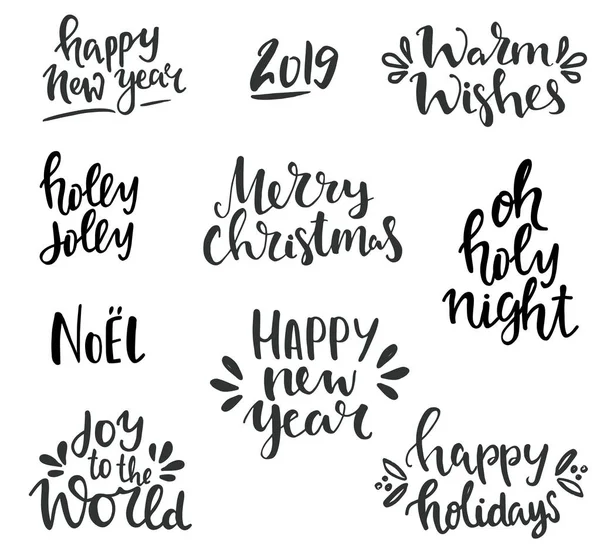 happy
New year
2019
Warm
Wishes
holly
Jolly
Merry
christmas
oh
holy
night
NoËL
HAPPY
new
year
Joy
to the
World
happy
holidays